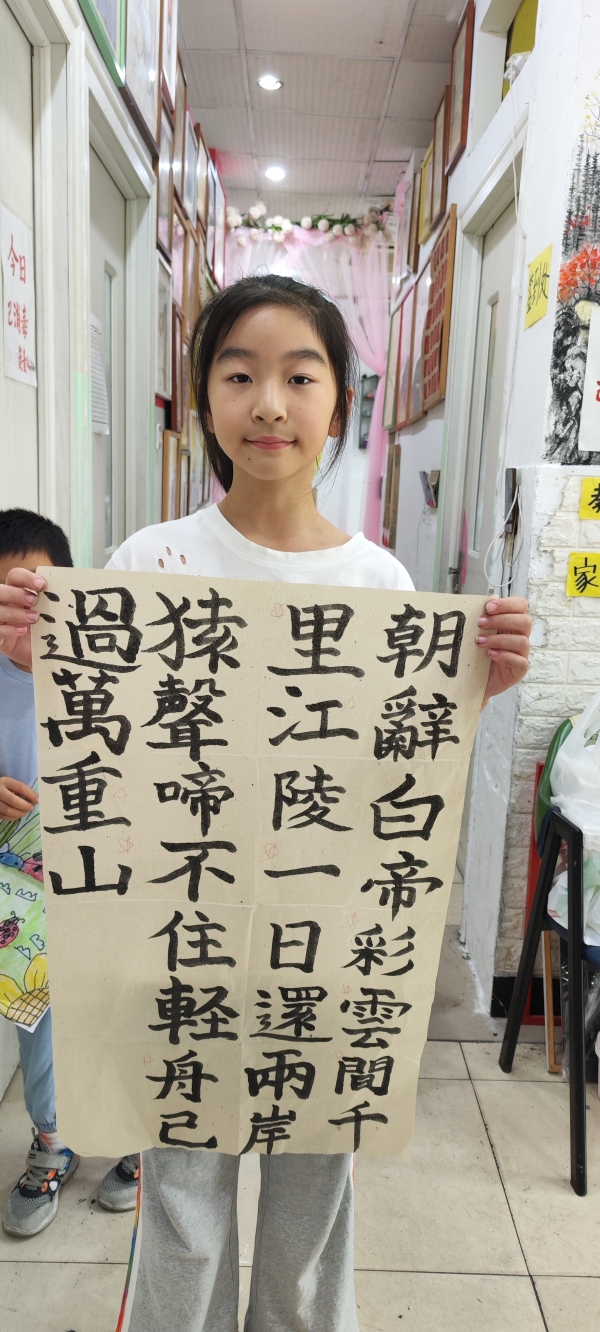 朝辭白帝彩雲間千
里江陵一日還兩岸
猿聲啼不住軽舟已
過萬重山
今日
已消毒
签到处
家